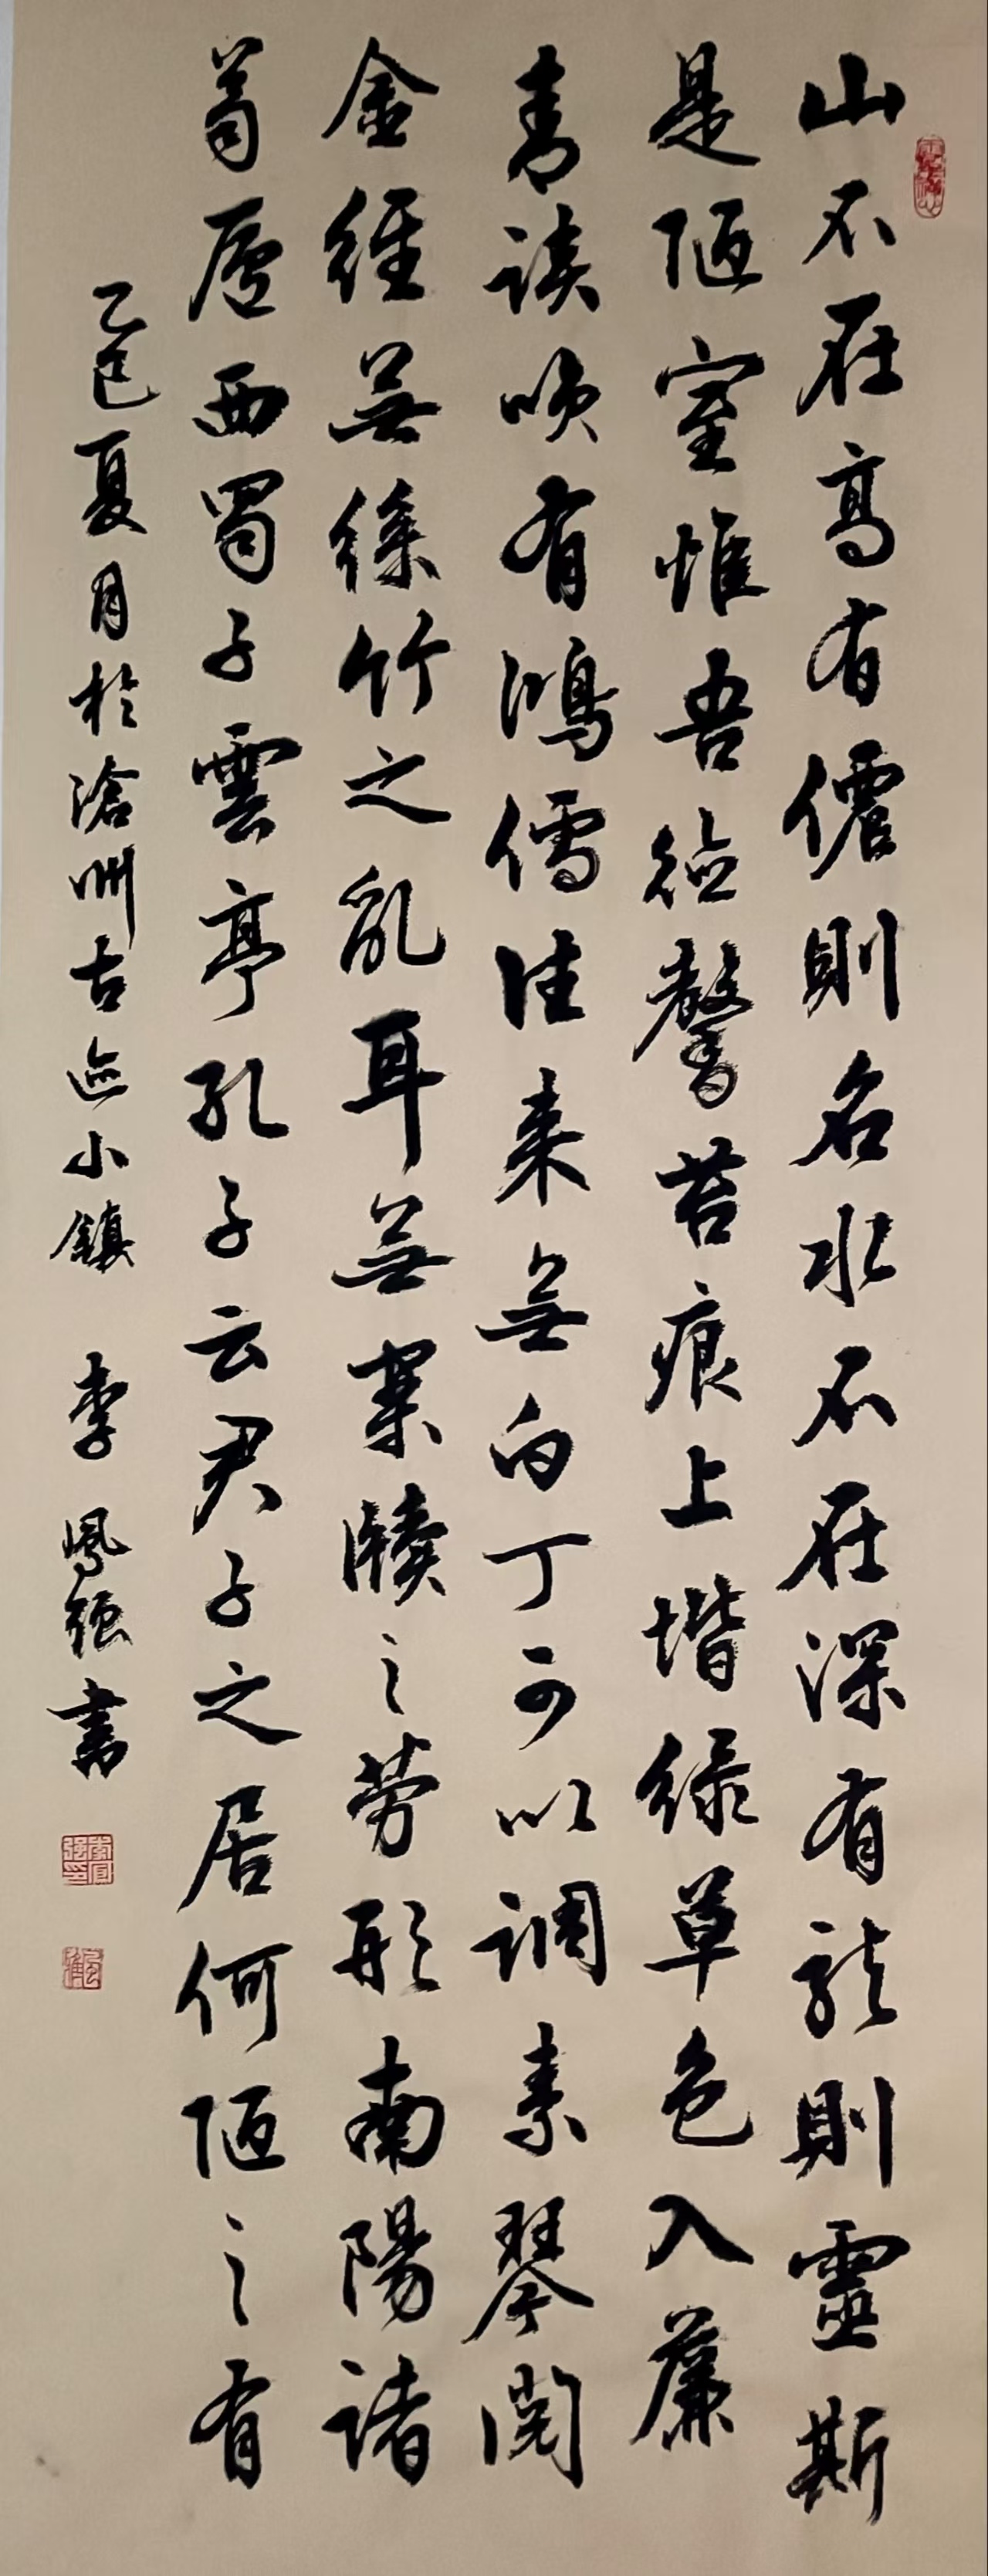 山不在高有僊則名水不在深有龍則靈斯
是陋室惟吾德馨苔痕上堦绿草色入簾
青談唤有鴻儒往来無白丁可以調素琴閱
金經無絲竹之亂耳無案牘之劳形南陽諸
葛廬西蜀子雲亭孔子云君子之居何陋之有
乙巳夏月於滄州古迹小鎮 李鳳强書